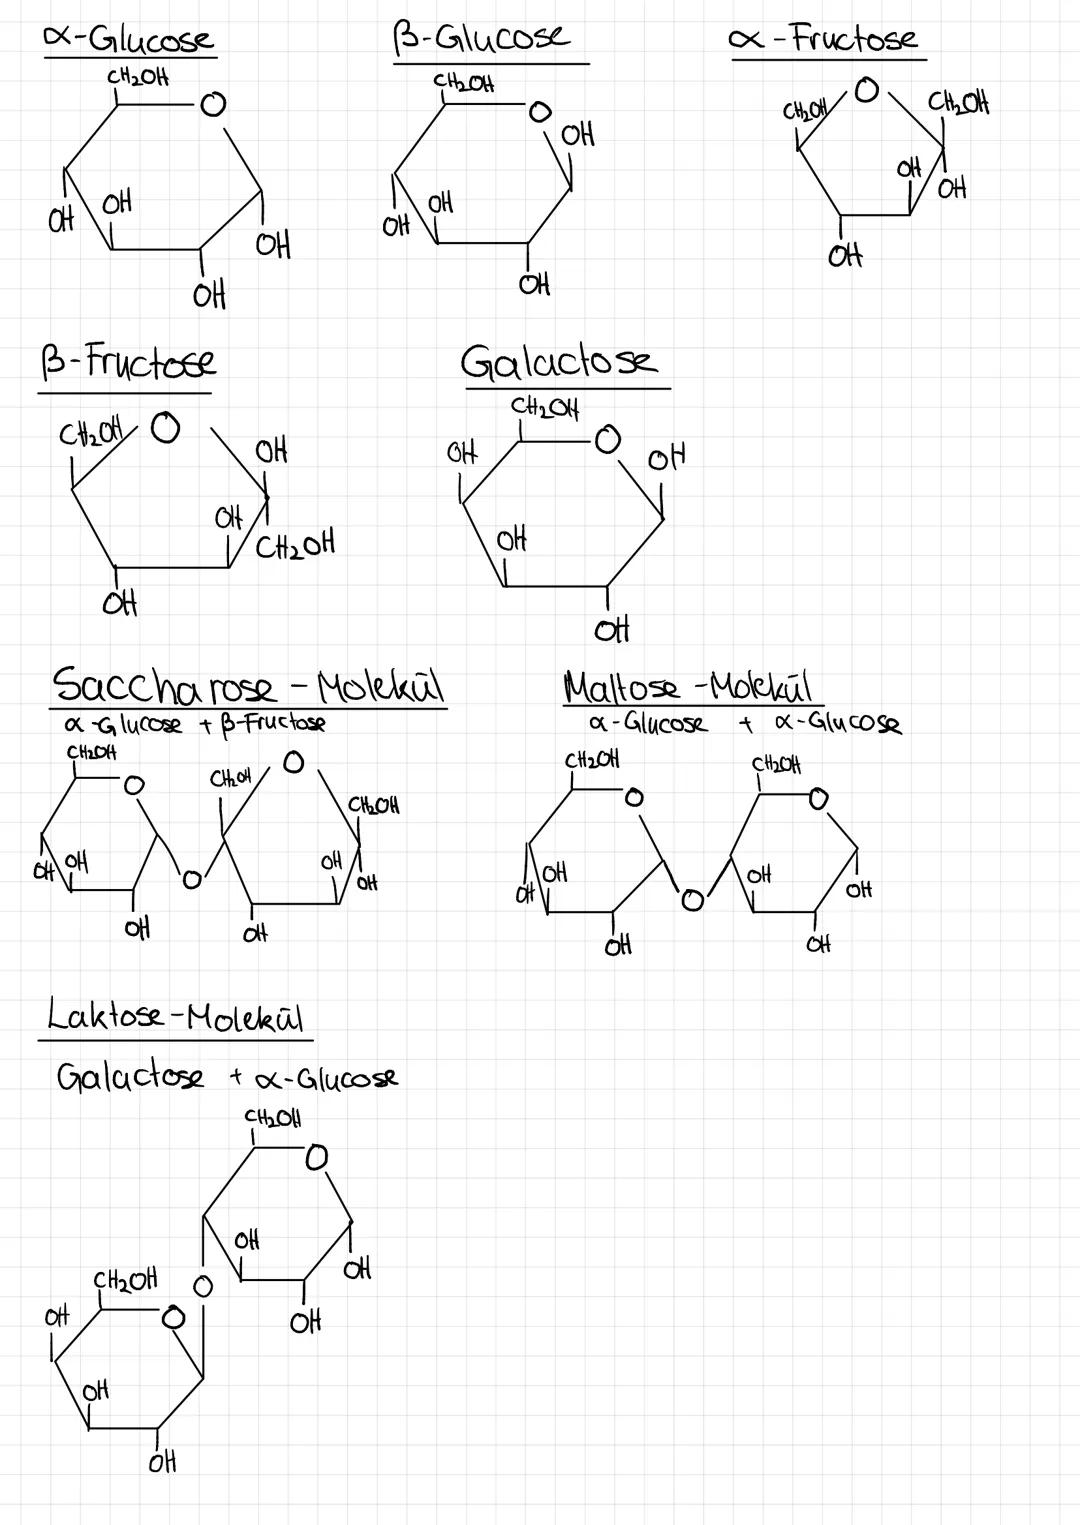 α-Glucose
CH₂OH
O
OH
OH
OH
OH
β-Glucose
CH₂OH
O
OH
OH
OH
OH
α-Fructose
O
CH₂OH
CH₂OH
OH
OH
OH
β-Fructose
CH₂OH O
OH
OH
CH₂OH
OH
Galactose
CH₂OH
OH
O
OH
OH
OH
Saccharose-Molekül
α-Glucose + β-Fructose
CH₂OH
O
OH
OH
OH
O
CH₂OH
O
CH₂OH
OH
OH
OH
Maltose-Molekül
α-Glucose + α-Glucose
CH₂OH
O
OH
OH
OH
O
CH₂OH
O
OH
OH
OH
Laktose-Molekül
Galactose + α-Glucose
CH₂OH
O
OH
OH
OH
O
CH₂OH
OH
O
OH
OH